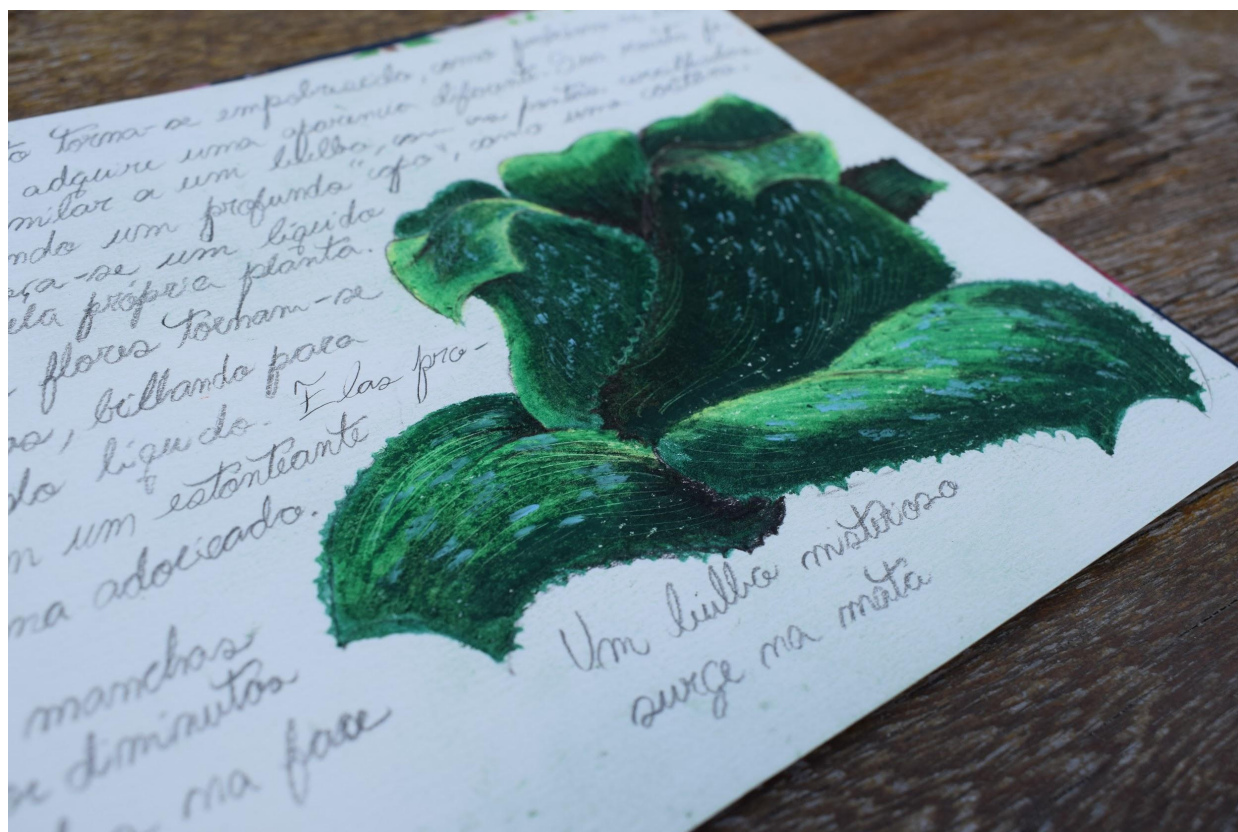 torna-se empobrecido, como
adquire uma aparência diferente. Sua
milar a um bulbo, com as pontas
ndo um profundo "copo", como uma
ça-se um líquido
ela própria planta.
flores tornam-se
as, brilhando para
líquido. Elas pro-
um estonteante
ma adocicado.
manchas
se diminutos
na face
Um bulbo misterioso
surge na mata